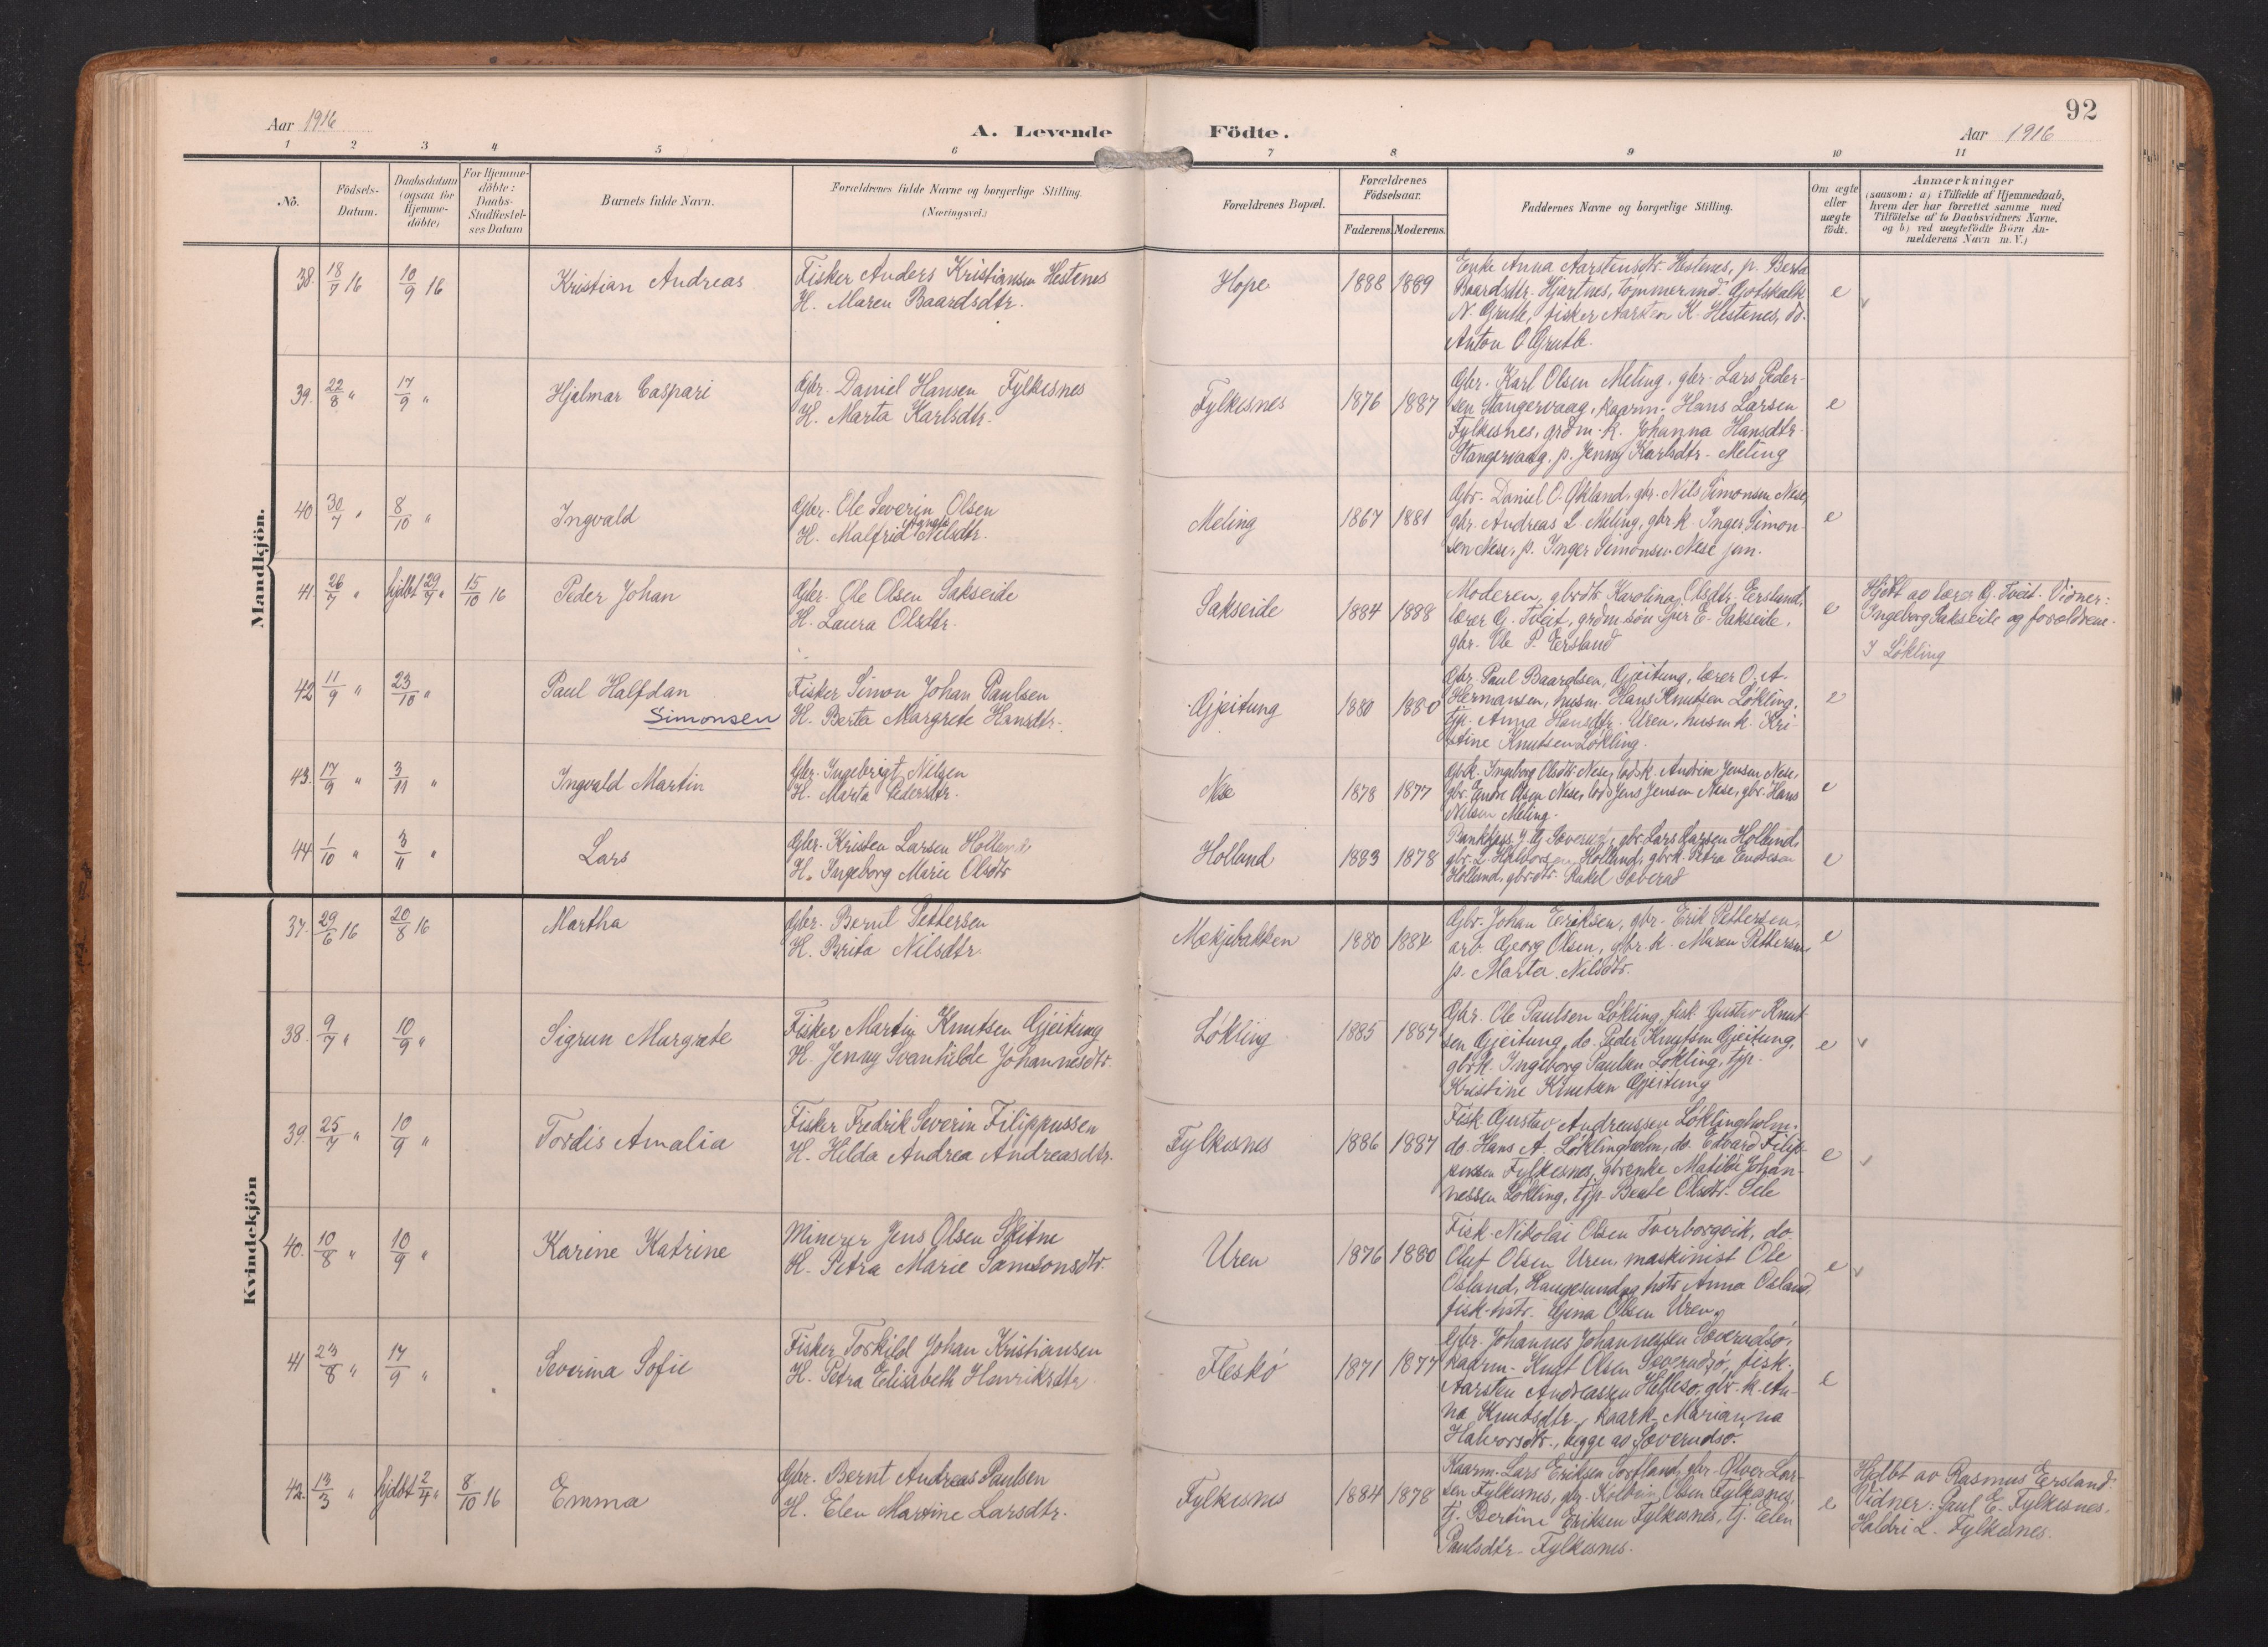 92
Aar 1916
A. Levende Födte.
Aar 1916
1 2 3 4 5 6 7 8 9 10 11
No.
Födsels-Datum.
Daabsdatum (ogsaa for Hjemme-döbte)
For Hjemme-döbte: Daabs-Stadfæstel-ses Datum
Barnets fulde Navn.
Forældrenes fulde Navne og borgerlige Stilling.
(Næringsvei.)
Forældrenes Bopæl.
Forældrenes Födselsaar.
Faderens. Moderens.
Faddernes Navne og borgerlige Stilling.
Om ægte eller uægte födt.
Anmærkninger
(saasom: a) i Tilfælde af Hjemmedaab,
hvem der har forrettet samme med
Tilföielse af to Daabsvidners Navne,
og b) ved uægtefödte Börn An-
melderens Navn m. V.)
Mandkjön.
38. 18/7 16 10/9 16 Kristian Andreas
Fisker Anders Kristiansen Hestenes
H. Maren Baardsdtr.
Hope 1888 1889
Enke Anna Aarstensdtr. Hestenes, p. Berta
Baardsdtr. Hjartnes, tømmermd. Gotskalk
N. Grutle, fisker Aarsten K. Hestenes, do.
Anton O Grutle.
e
39. 22/8 " 17/9 " Hjalmar Caspari
Gbr. Daniel Hansen Fylkesnes
H. Marta Karlsdtr.
Fylkesnes 1876 1887
Gbr. Karl Olsen Meling, gbr. Lars Peder-
sen Stangervaag, kaarm. Hans Larsen
Fylkesnes, grdm. k. Johanna Hansdtr.
Stangervaag, p. Jenny Karlsdtr. Meling
e
40 30/7 " 8/10 " Ingvald
Gbr. Ole Severin Olsen
H. Malfrid Nilsdtr.
Meling 1867 1881
Gbr. Daniel O. Økland, gbr. Nils Simonsen Nese,
gbr. Andreas L. Meling, gbr.k. Inger Simon-
sen Nese, p. Inger Simonsen Nese jun.
e
41. 26/7 " hjdbt 29/7 " 15/10 16 Peder Johan
Gbr. Ole Olsen Sakseide
H. Laura Olsdtr.
Sakseide 1884 1888
Moderen, gbrdtr. Karolina Olsdtr. Eersland,
lærer G. Tveit, grdm.søn Geir E. Sakseide,
gbr. Ole P. Eersland
e
Hjdbt av lærer G. Tveit. Vidner:
Ingeborg Sakseide og forældrene.
I Løkling
42 11/9 " 23/10 " Paul Halfdan
Simonsen
Fisker Simon Johan Paulsen
H. Berta Margrete Hansdtr.
Gjeitung 1880 1880
Gbr. Paul Baardsen, Gjeitung, lærer O. A.
Hermansen, husm. Hans Knutsen Løkling,
tjp. Anna Hansdtr. Uren, husm.k. Kri-
stine Knutsen Løkling.
e
43. 17/9 " 3/11 " Ingvald Martin
Gbr. Ingebrigt Nilsen
H. Marta Pedersdtr.
Nese 1878 1877
Gbr.k. Ingeborg Olsdtr. Nese, lods.k. Andrine Jensen Nese,
gbr. Endre Olsen Nese, lods Jens Jensen Nese, gbr. Hans
Nilsen Meling.
e
44 1/10 " 3/11 " Lars
Gbr. Kristen Larsen Holland
H. Ingeborg Marie Olsdtr
Holland 1883 1878
Bankkass. gbr. Lars Larsen Holland,
gbr. L. Halvorsen Holland, gbrk. Petra Endresen
Holland, gbrdtr. Rakel
e
Kvindekjön
37. 29/6 16 20/8 16 Martha
Gbr. Bernt Pettersen
H. Brita Nilsdtr.
Mækjebakken 1880 1884
Gbr. Johan Eriksen, gbr. Erik Pettersen,
arb. Georg Olsen, gbr.k. Maren Pettersen,
p. Marta Nilsdtr.
e
38. 9/7 " 10/9 " Sigrun Margrete
Fisker Martin Knutsen Gjeitung
H. Jenny Svanhilde Johannesdtr.
Løkling 1885 1887
Gbr. Ole Paulsen Løkling, fisk. Gustav Knut-
sen Gjeitung, do. Peder Knutsen Gjeitung,
gbrk. Ingeborg Paulsen Løkling, tjp.
Kristine Knutsen Gjeitung
e
39. 25/7 " 10/9 " Tordis Amalia
Fisker Fredrik Severin Filippussen
H. Hilda Andrea Andreasdtr.
Fylkesnes 1886 1887
Fisk. Gustav Andreassen Løklingholm,
do. Hans A. Løklingholm, do. Edvard Filip-
pussen Fylkesnes, gbrenke Matilde Johan-
nessen Løkling, tjp. Beate Olsdtr. Sele
e
40. 10/8 " 10/9 " Karine Katrine
Minerer Jens Olsen Sleitne
H. Petra Marie Samsonsdtr.
Uren 1876 1880
Fisk. Nikolai Olsen Tverborgvik, do.
Oluf Olsen Uren, maskinist Ole
Osland, Haugesund, hstr. Anna Osland,
fisk. hstr. Gjena Olsen Uren
e
41 23/8 " 17/9 " Severina Sofie
Fisker Torkild Johan Kristiansen
H. Petra Elisabeth Henriksdtr
Fleskö 1871 1877
Gbr. Johannes Johannessen
kaarm. Knut Olsen fisk.
Aarsten Andreassen gbr.k. An-
na Knutsdtr., kaark. Marianna
Halvorsdtr., begge av
e
42. 13/3 " hjdbt 2/4 " 8/10 16 Emma
Gbr. Bernt Andreas Paulsen
H. Elen Martine Larsdtr.
Fylkesnes 1884 1878
Kaarm. Lars Eriksen Tortland, gbr. Olver Lar-
sen Fylkesnes, gbr. Kolbein Olsen Fylkesnes,
tj. Bertine Eriksen Fylkesnes, tj. Elen
Paulsdtr. Fylkesnes.
e
Hjdbt av Rasmus Eersland.
Vidner: Paul E. Fylkesnes.
Haldri L. Fylkesnes.